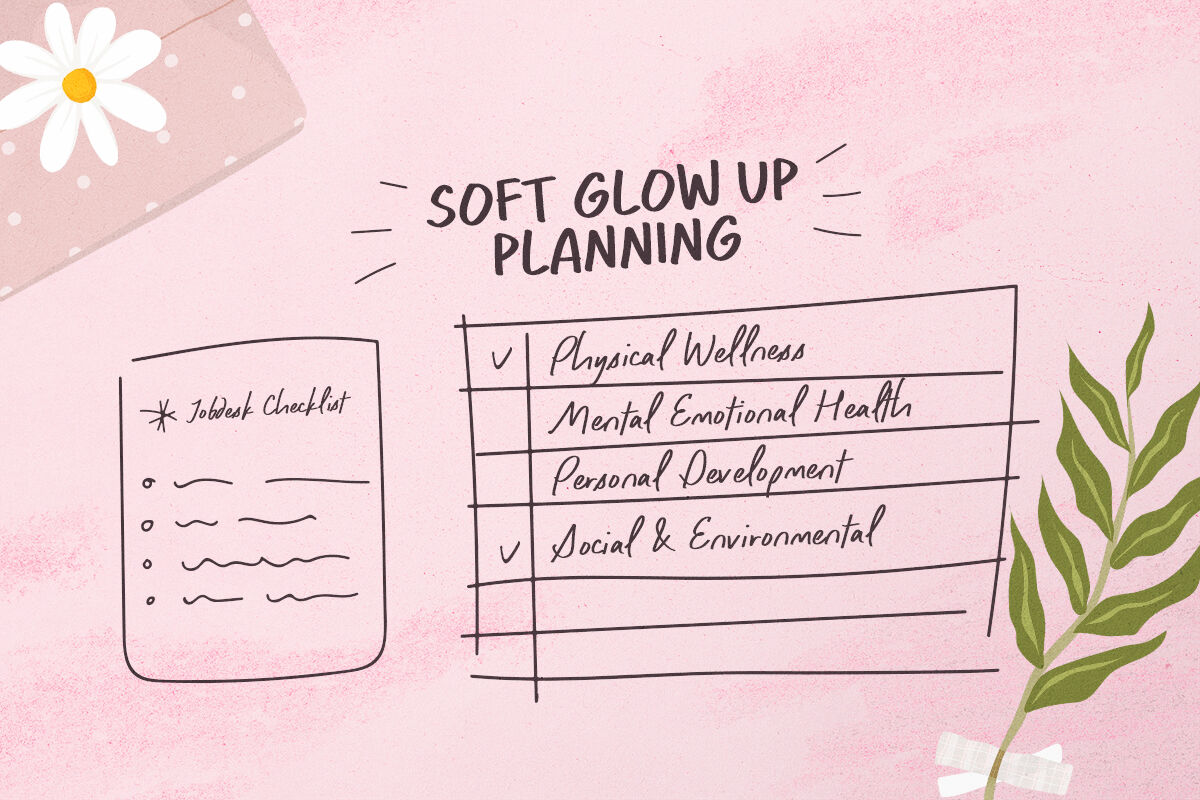 SOFT GLOW UP
PLANNING
Jobdesk Checklist
✓ Physical Wellness
Mental Emotional Health
Personal Development
✓ Social & Environmental